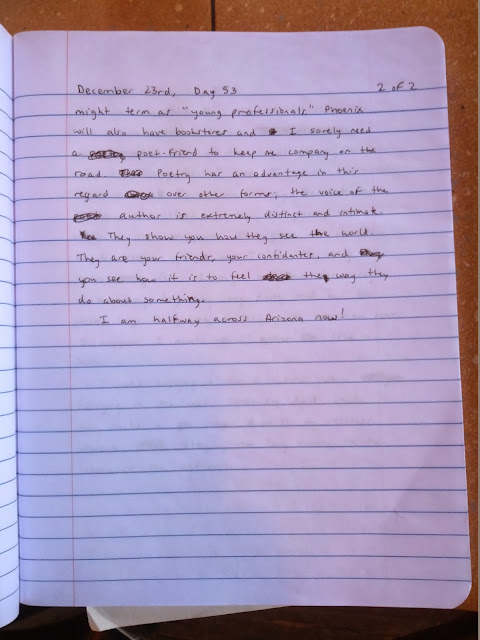 December 23rd, Day 53 2 of 2
might term as "young professionals" Phoenix
will also have bookstores and I sorely need
a poet-friend to keep me company on the
road. Poetry has an advantage in this
regard over other forms; the voice of the
author is extremely distinct and intimate.
They show you how they see the world.
They are your friends, your confidantes, and
you see how it is to feel the way they
do about something.
I am halfway across Arizona now!